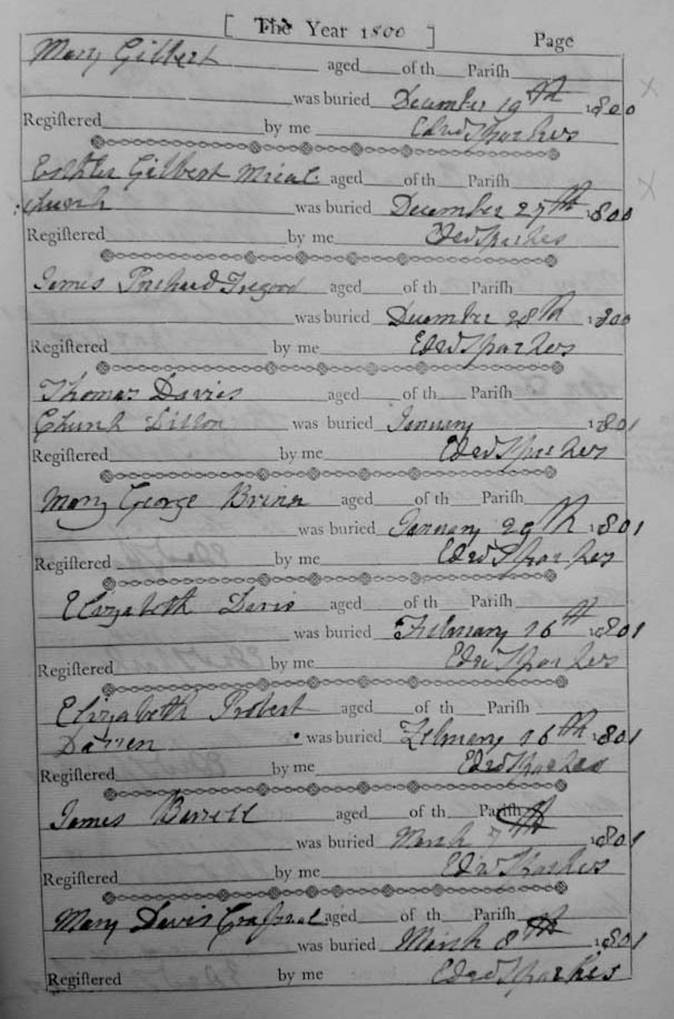 [ The Year 1800 ] Page
Mary Gilbert aged of th Pariſh
was buried December 19th 1800
Regiſtered by me Edwd Sparkes
Esther Gilbert Micael aged of th Pariſh
:church was buried December 27th 1800
Regiſtered by me Edwd Sparkes
James Prichard Tregood aged of th Pariſh
was buried December 28th 1800
Regiſtered by me Edwd Sparkes
Thomas Davies aged of th Pariſh
Church was buried January 1801
Regiſtered by me Edwd Sparkes
Mary George aged of th Pariſh
was buried January 29th 1801
Regiſtered by me Edwd Sparkes
Elizabeth Davis aged of th Pariſh
was buried February 16th 1801
Regiſtered by me Edw Sparkes
Elizabeth Probert aged of th Pariſh
Darren was buried February 16th 1801
Regiſtered by me Edwd Sparkes
James Barrell aged of th Pariſh
was buried March 7th 1801
Regiſtered by me Edwd Sparkes
Mary Davis aged of th Pariſh
was buried March 8th 1801
Regiſtered by me Edwd Sparkes